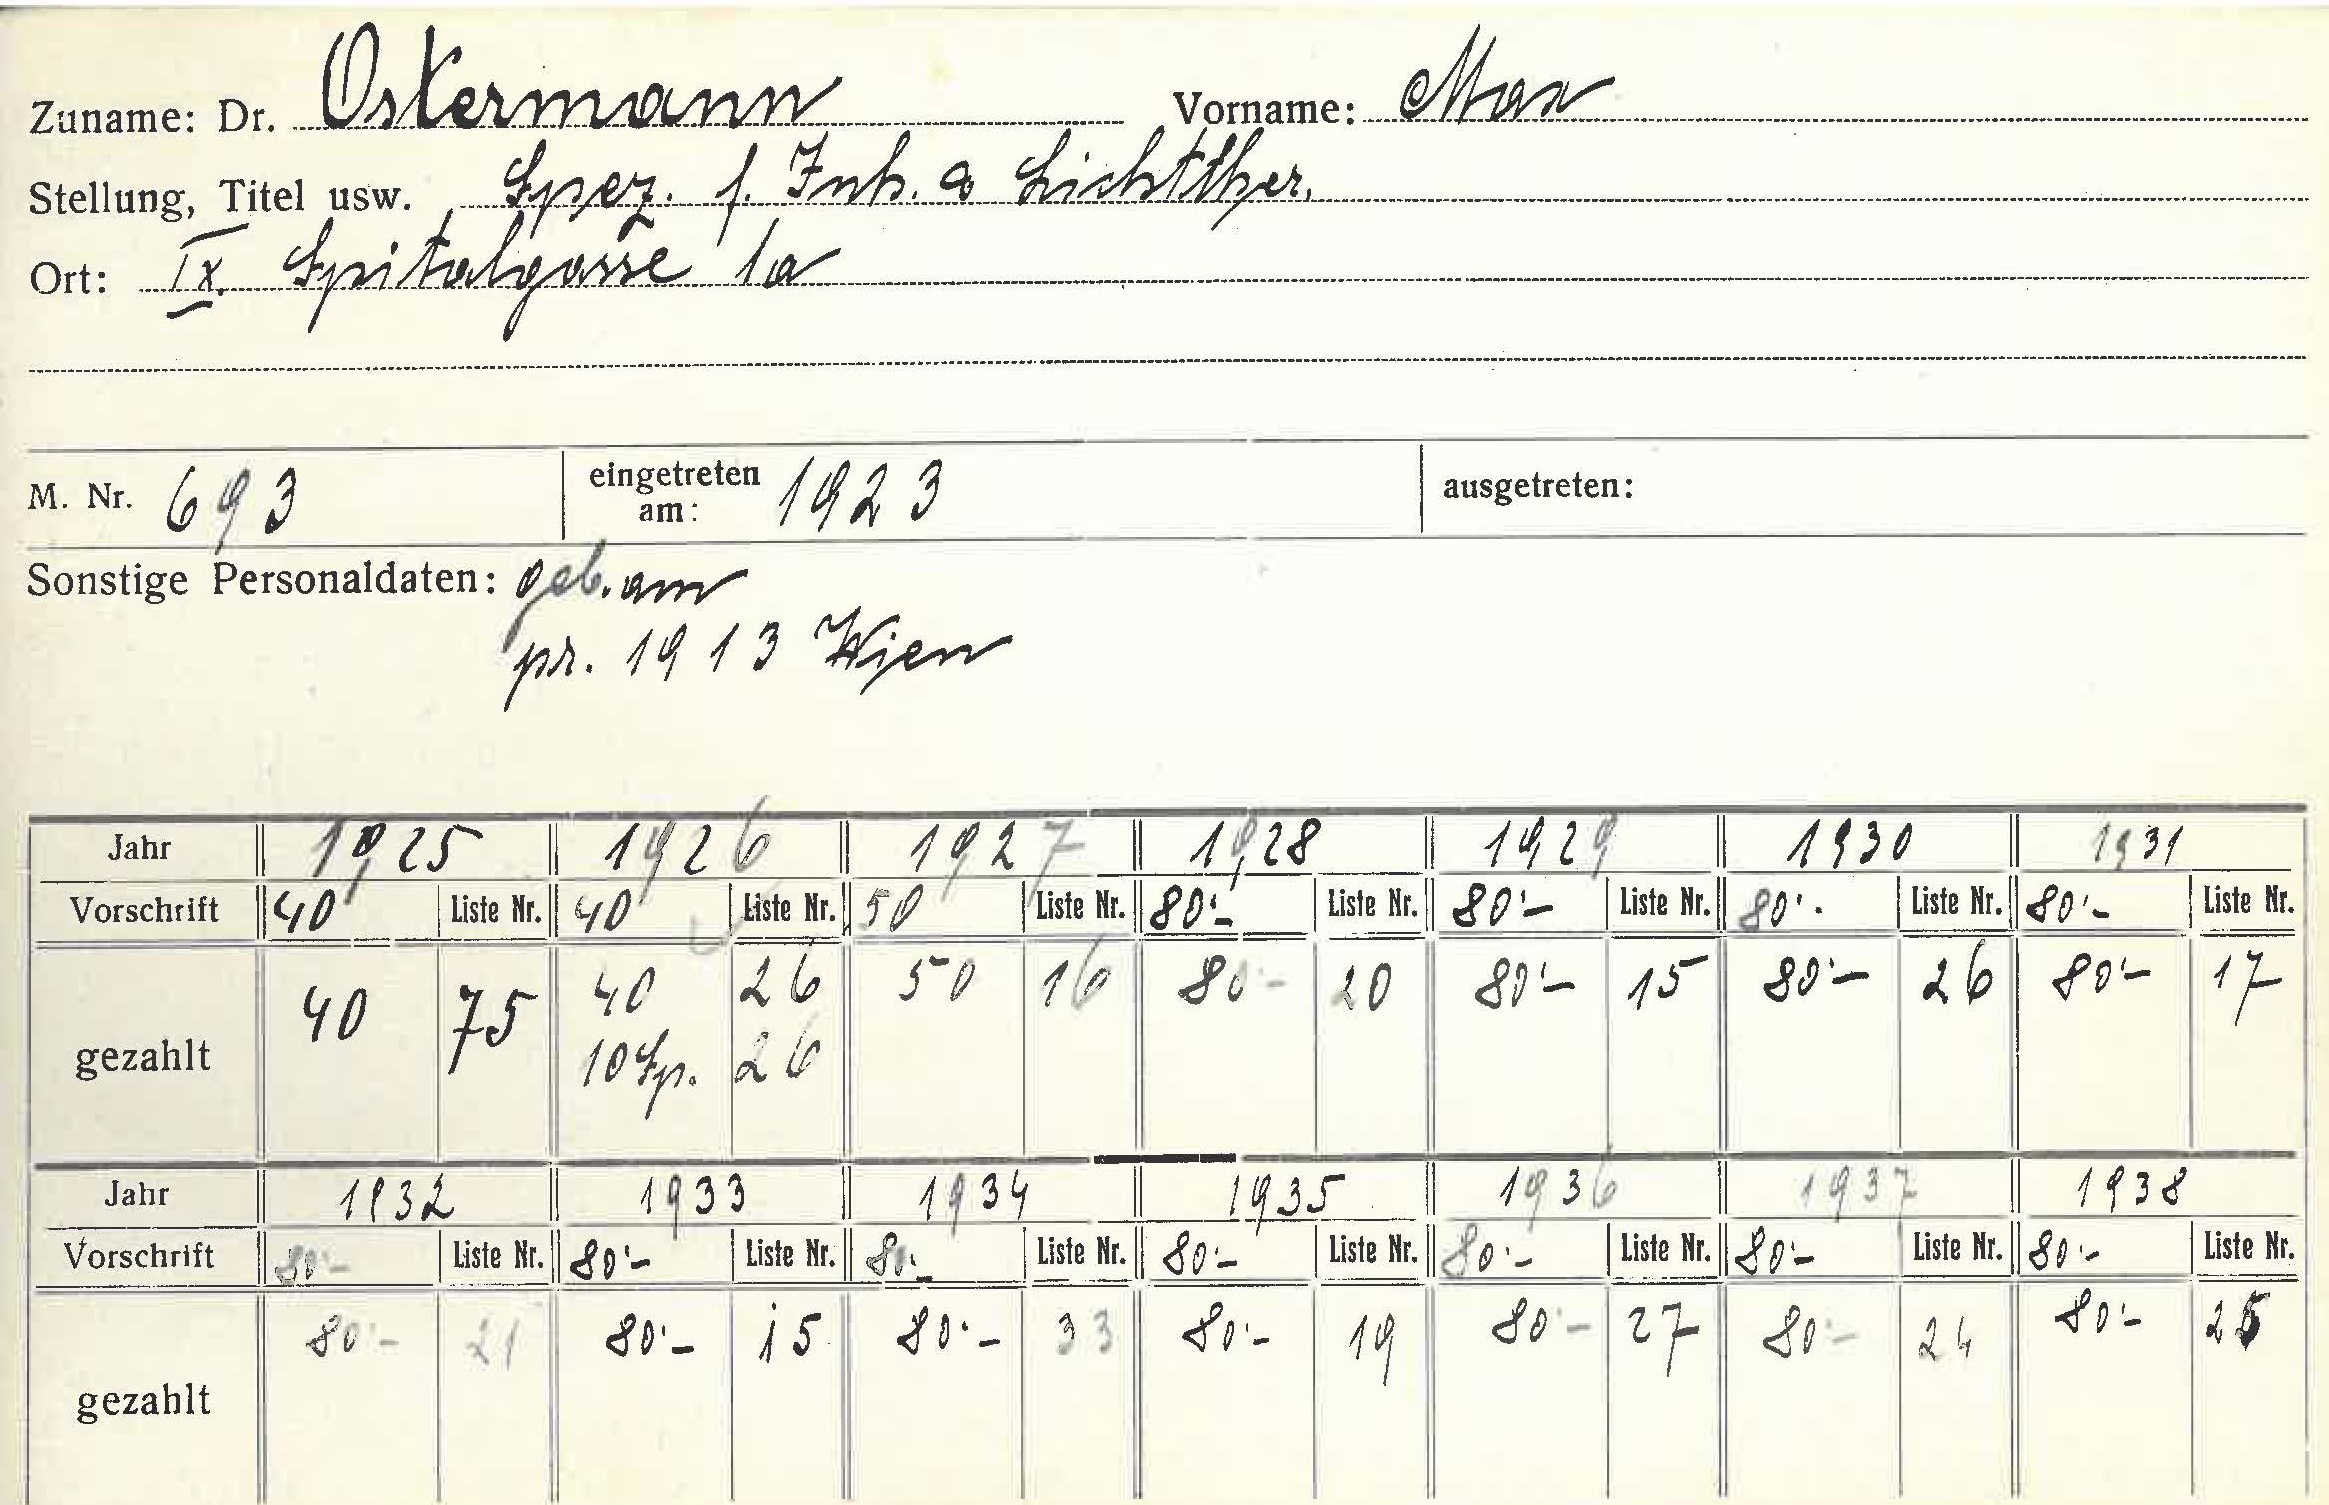 Zuname: Dr. Ostermann Vorname: Max
Stellung, Titel usw. Spez. f. Inh. & Lichtther.
Ort: IX. Spitalgasse 1a
M. Nr. 693 eingetreten am: 1923 ausgetreten:
Sonstige Personaldaten: geb. am
pr. 1913 Wien
Jahr 1925 1926 1927 1928 1929 1930 1931
Vorschrift 40 Liste Nr. 40 Liste Nr. 50 Liste Nr. 80·- Liste Nr. 80·- Liste Nr. 80·- Liste Nr. 80·- Liste Nr.
gezahlt 40 75 40 26 50 16 80·- 20 80·- 15 80·- 26 80·- 17
10 Sp. 26
Jahr 1932 1933 1934 1935 1936 1937 1938
Vorschrift 80·- Liste Nr. 80·- Liste Nr. 80·- Liste Nr. 80·- Liste Nr. 80·- Liste Nr. 80·- Liste Nr. 80·- Liste Nr.
gezahlt 80·- 21 80·- 15 80·- 33 80·- 19 80·- 27 80·- 24 80·- 25